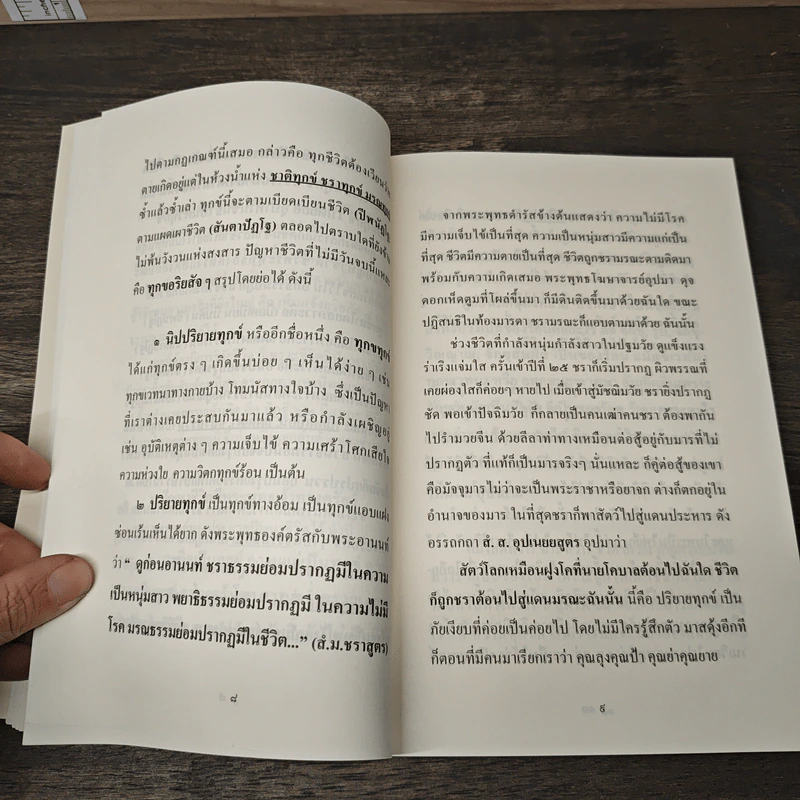 ไปตามกฎเกณฑ์นี้เสมอ กล่าวคือ ทุกชีวิตต้องเวียน
ตายเกิดอยู่แต่ในห้วงน้ำแห่ง ชาติทุกข์ ชราทุกข์
ซ้ำแล้วซ้ำเล่า ทุกข์นี้จะตามเบียดเบียนชีวิต
ตามแผดเผาชีวิต (สันตาปัฏโฐ) ตลอดไปตราบใดที่ยัง
ไม่พ้นวังวนแห่งสงสาร ปัญหาชีวิตที่ไม่มีวันจบนี้แหละ
คือ ทุกขอริยสัจ ๆ สรุปโดยย่อได้ ดังนี้
๑ นิปปริยายทุกข์ หรืออีกชื่อหนึ่ง คือ ทุกขทุกข์
ได้แก่ทุกข์ตรง ๆ เกิดขึ้นบ่อย ๆ เห็นได้ง่าย ๆ เช่น
ทุกขเวทนาทางกายบ้าง โทมนัสทางใจบ้าง ซึ่งเป็นปัญหา
ที่เราต่างเคยประสบกันมาแล้ว หรือกำลังเผชิญอยู่
เช่น อุบัติเหตุต่าง ๆ ความเจ็บไข้ ความเศร้าโศกเสียใจ
ความห่วงใย ความวิตกทุกข์ร้อน เป็นต้น
๒ ปริยายทุกข์ เป็นทุกข์ทางอ้อม เป็นทุกข์แอบแฝง
ซ่อนเร้นเห็นได้ยาก ดังพระพุทธองค์ตรัสกับพระอานนท์
ว่า “ ดูก่อนอานนท์ ชราธรรมย่อมปรากฏมีในความ
เป็นหนุ่มสาว พยาธิธรรมย่อมปรากฏมี ในความไม่มี
โรค มรณธรรมย่อมปรากฏมีในชีวิต...” (สํ.ม.ชราสูตร)
๘
จากพระพุทธดำรัสข้างต้นแสดงว่า ความไม่มีโรค
มีความเจ็บไข้เป็นที่สุด ความเป็นหนุ่มสาวมีความแก่เป็น
ที่สุด ชีวิตมีความตายเป็นที่สุด ชีวิตถูกชรามรณะตามติดมา
พร้อมกับความเกิดเสมอ พระพุทธโฆษาจารย์อุปมา ดุจ
ดอกเห็ดตูมที่โผล่ขึ้นมา ก็มีดินติดขึ้นมาด้วยฉันใด ขณะ
ปฏิสนธิในท้องมารดา ชรามรณะก็แอบตามมาด้วย ฉันนั้น
ช่วงชีวิตที่กำลังหนุ่มกำลังสาวในปฐมวัย ดูแข็งแรง
ร่าเริงแจ่มใส ครั้นเข้าปีที่ ๒๕ ชราก็เริ่มปรากฏ ผิวพรรณที่
เคยผ่องใสก็ค่อยๆ หายไป เมื่อเข้าสู่มัชฌิมวัย ชรายิ่งปรากฏ
ชัด พอเข้าปัจฉิมวัย ก็กลายเป็นคนเฒ่าคนชรา ต้องพากัน
ไปรำมวยจีน ด้วยลีลาท่าทางเหมือนต่อสู้อยู่กับมารที่ไม่
ปรากฏตัว ที่แท้ก็เป็นมารจริงๆ นั่นแหละ ก็คู่ต่อสู้ของเขา
คือมัจจุมาร ไม่ว่าจะเป็นพระราชาหรือยาจก ต่างก็ตกอยู่ใน
อำนาจของมาร ในที่สุดชราก็พาสัตว์ไปสู่แดนประหาร ดัง
อรรถกถา สํ. ส. อุปเนยยสูตร อุปมาว่า
สัตว์โลกเหมือนฝูงโคที่นายโคบาลต้อนไปฉันใด ชีวิต
ก็ถูกชราต้อนไปสู่แดนมรณะฉันนั้น นี้คือ ปริยายทุกข์ เป็น
ภัยเงียบที่ค่อยเป็นค่อยไป โดยไม่มีใครรู้สึกตัว มาสดุ้งอีกที
ก็ตอนที่มีคนมาเรียกเราว่า คุณลุงคุณป้า คุณย่าคุณยาย
๙